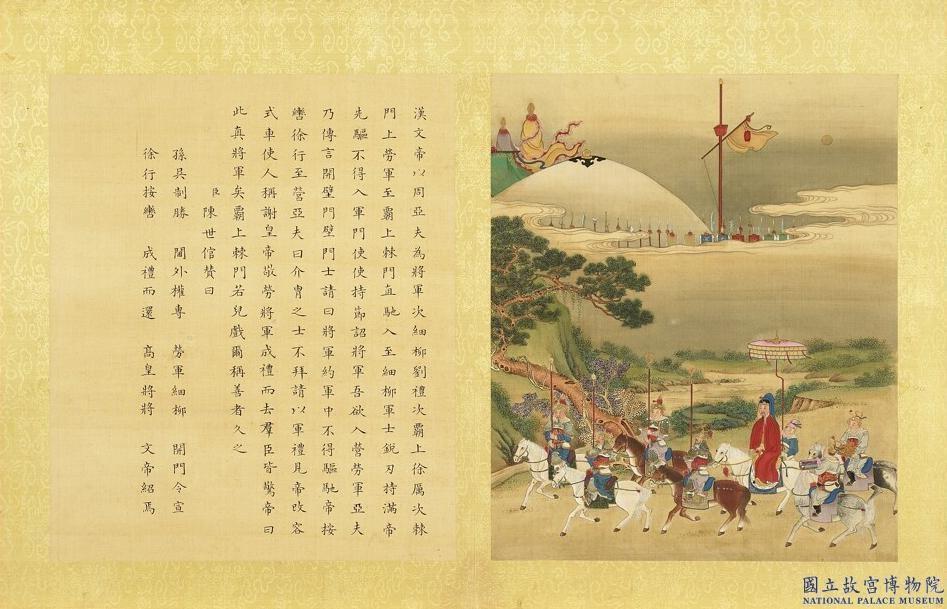 漢文帝以周亞夫為將軍次細柳劉禮次霸上徐厲次棘
門上勞軍至霸上棘門直馳入至細柳軍士銳刃持滿帝
先驅不得入軍門使使持節詔將軍吾欲入營勞軍亞夫
乃傳言開壁門壁門士請曰將軍約軍中不得驅馳帝按
轡徐行至營亞夫曰介胄之士不拜請以軍禮見帝改容
式車使人稱謝皇帝敬勞將軍成禮而去羣臣皆驚帝曰
此真將軍矣霸上棘門若兒戲爾稱善者久之
臣陳世倌贊曰
孫吳制勝 閫外權專 勞軍細柳 開門令宣
徐行按轡 成禮而還 高皇將將 文帝紹焉
國立故宮博物院
NATIONAL PALACE MUSEUM